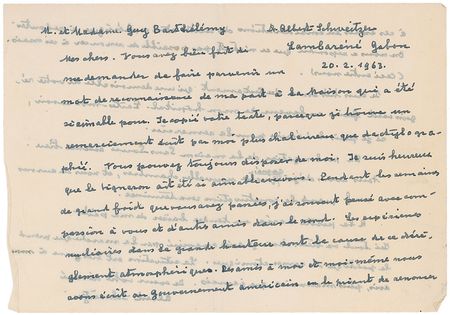 M. et Madame Guy Barthélémy
Dr Albert Schweitzer
Lambaréné Gabon
20.2.1963.
Mes chers. Vous avez bien fait de
me demander de faire parvenir un
mot de reconnaissance de ma part à la Maison qui a été
si aimable pour. Je copie votre texte, parceque je trouve un
remerciement écrit par moi plus chaleureux que dactylogra-
phié. Vous pouvez toujours disposer de moi. Je suis heureux
que le vigneron ait été si aimable envers. Pendant les semaines
de grand froid que vous avez passées, j'ai souvent pensé avec com-
passion à vous et d'autres amis dans le nord. Les expériences
nucléaires dans la grande hauteur sont la cause de ce déré-
glement atmosphériques. Les amis à moi et moi-même nous
avons écrit au Gouvernement américain en le priant de renoncer